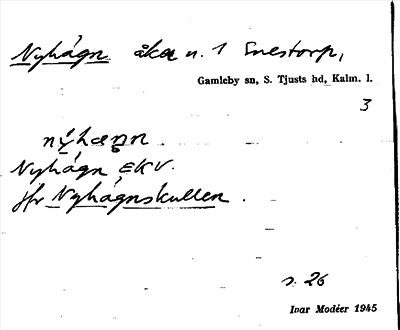 Nyhágn åker n. 1 Snestorp,
Gamleby sn, S. Tjusts hd, Kalm. l.
3
nýhagn.
Nyhágn EKV.
jfr Nyhágnskullen.
s. 26
Ivar Modéer 1945